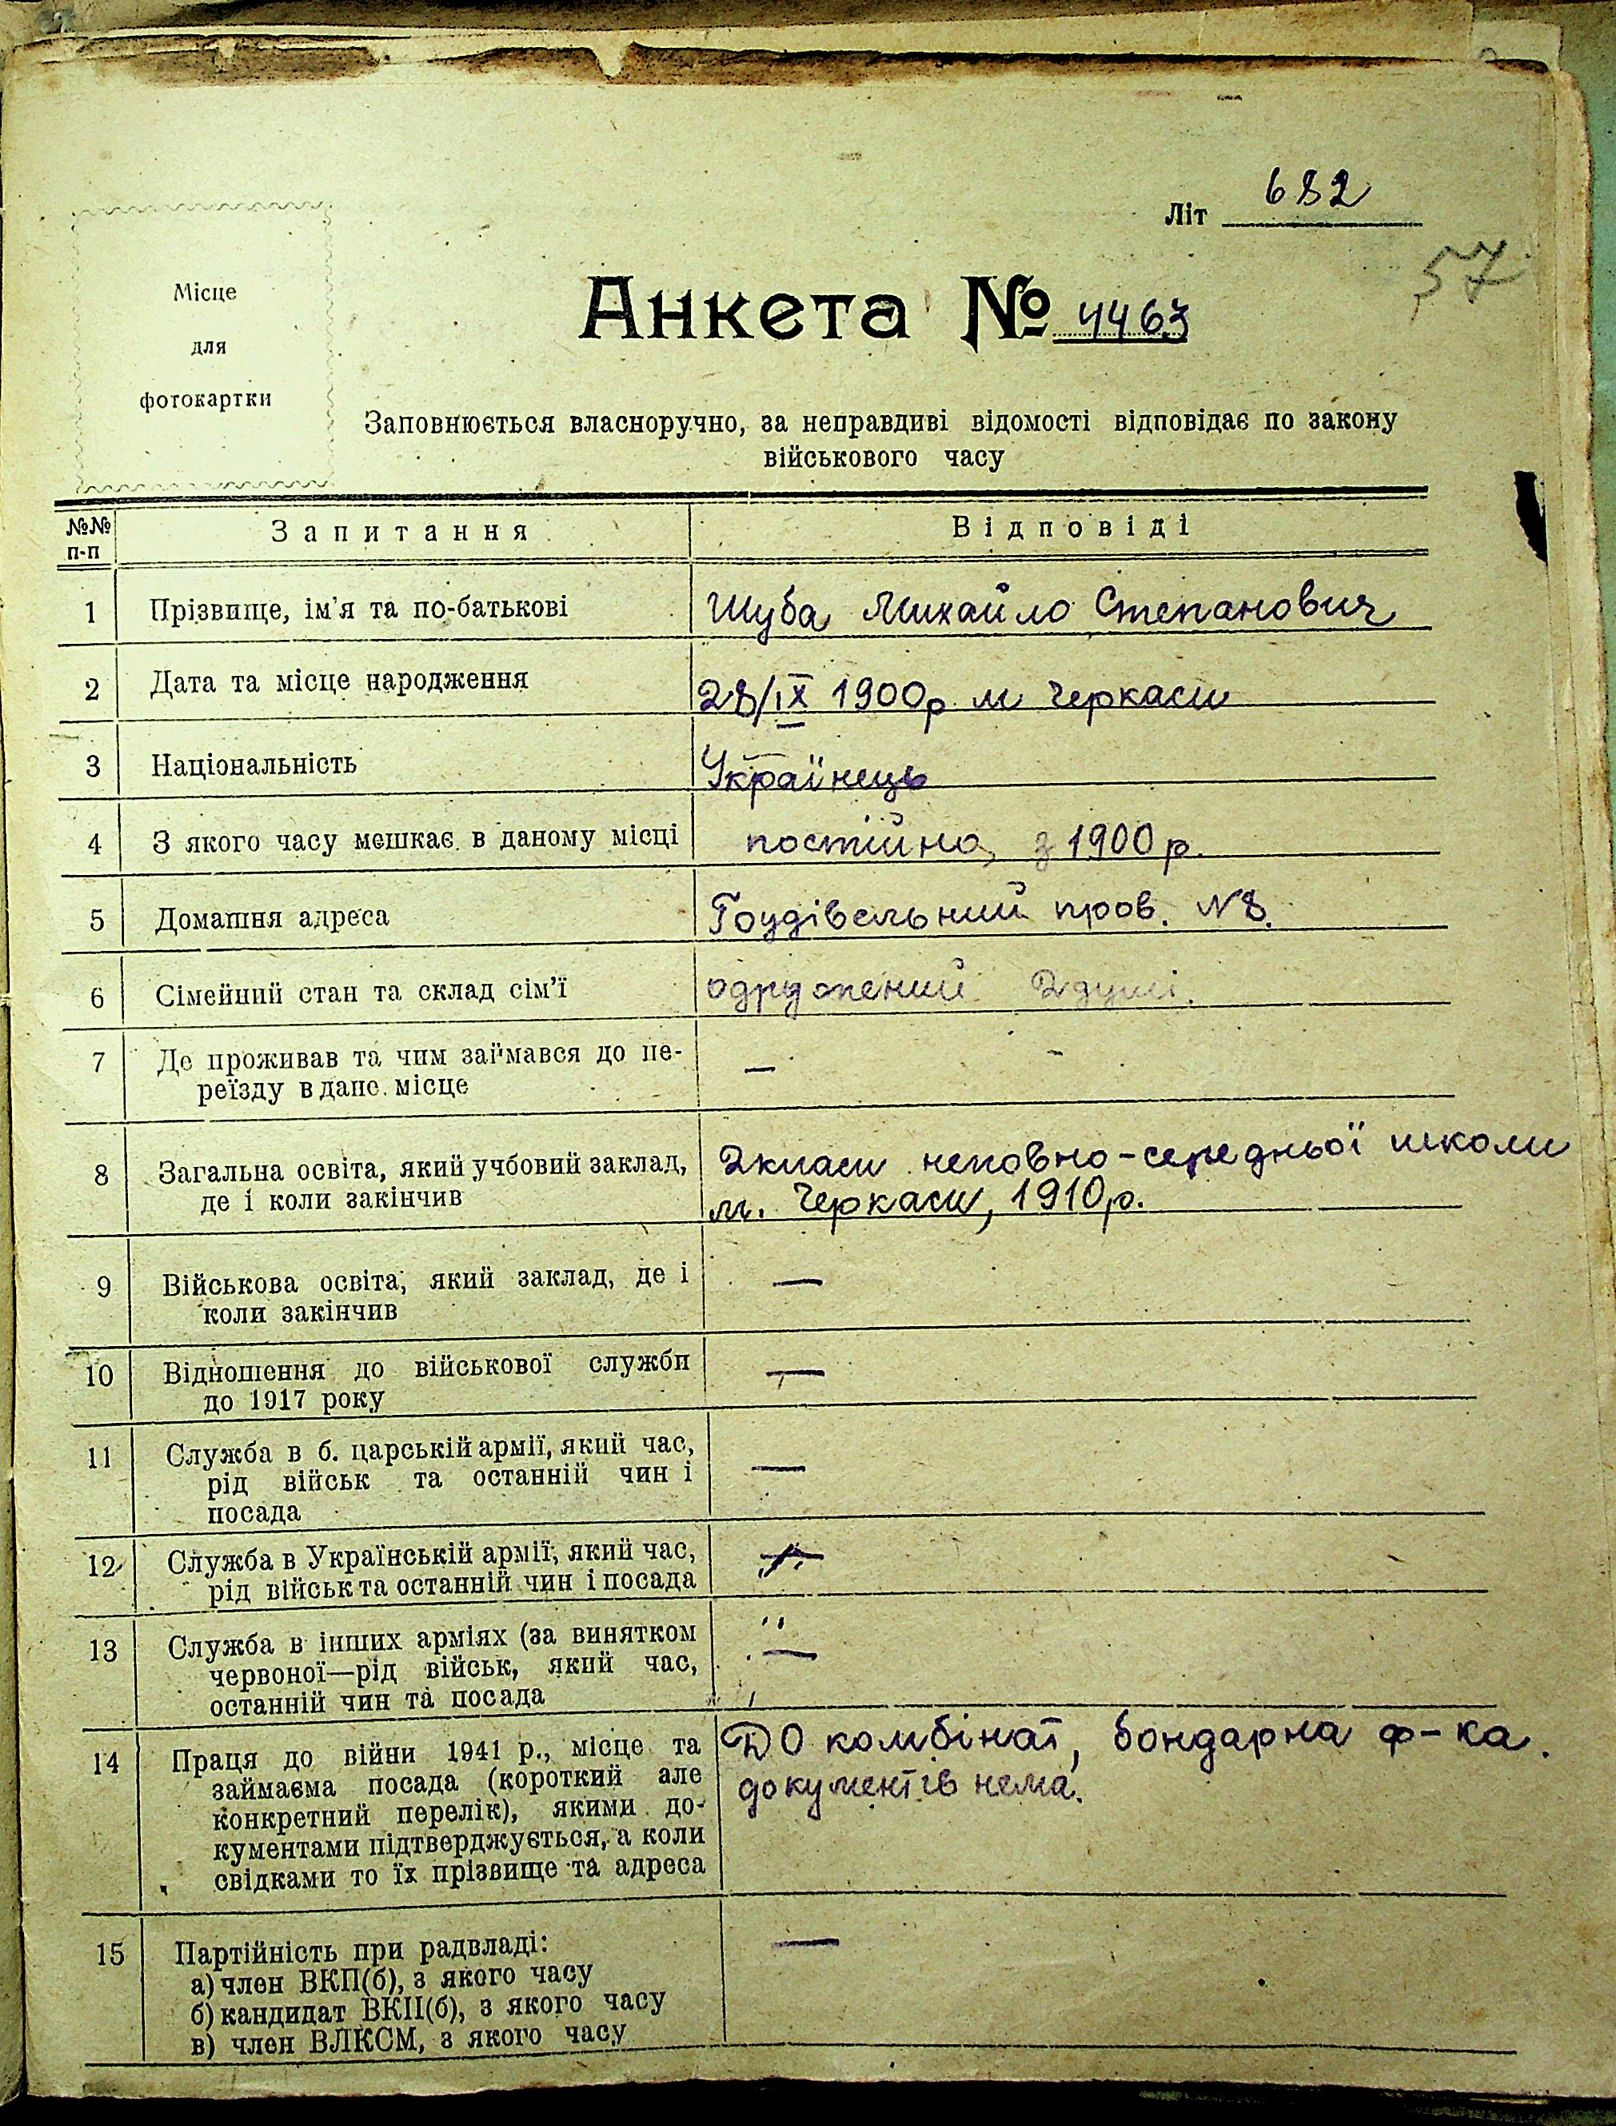 Літ 682
57
Місце
для
фотокартки
Анкета № 4463
Заповнюється власноручно, за неправдиві відомості відповідає по закону
військового часу
№№ п-п Запитання Відповіді
1 Прізвище, ім'я та по-батькові Шуба Михайло Степанович
2 Дата та місце народження 28/IX 1900р м Черкаси
3 Національність Українець
4 З якого часу мешкає в даному місці постійно, з 1900 р.
5 Домашня адреса пров. N 8.
6 Сімейний стан та склад сім'ї одружений 2 душі.
7 Де проживав та чим займався до пе-
реїзду в дане місце —
8 Загальна освіта, який учбовий заклад, 2 класи неповно-середньої школи
де і коли закінчив м. Черкаси, 1910р.
9 Військова освіта, який заклад, де і —
коли закінчив
10 Відношення до військової служби —
до 1917 року
11 Служба в б. царській армії, який час, —
рід військ та останній чин і
посада
12 Служба в Українській армії, який час, —
рід військ та останній чин і посада
13 Служба в інших арміях (за винятком —
червоної—рід військ, який час,
останній чин та посада
14 Праця до війни 1941 р., місце та ДО комбінат, бондарна ф-ка.
займаєма посада (короткий але документів нема.
конкретний перелік), якими до-
кументами підтверджується, а коли
свідками то їх прізвище та адреса
15 Партійність при радвладі: —
а) член ВКП(б), з якого часу
б) кандидат ВКП(б), з якого часу
в) член ВЛКСМ, з якого часу